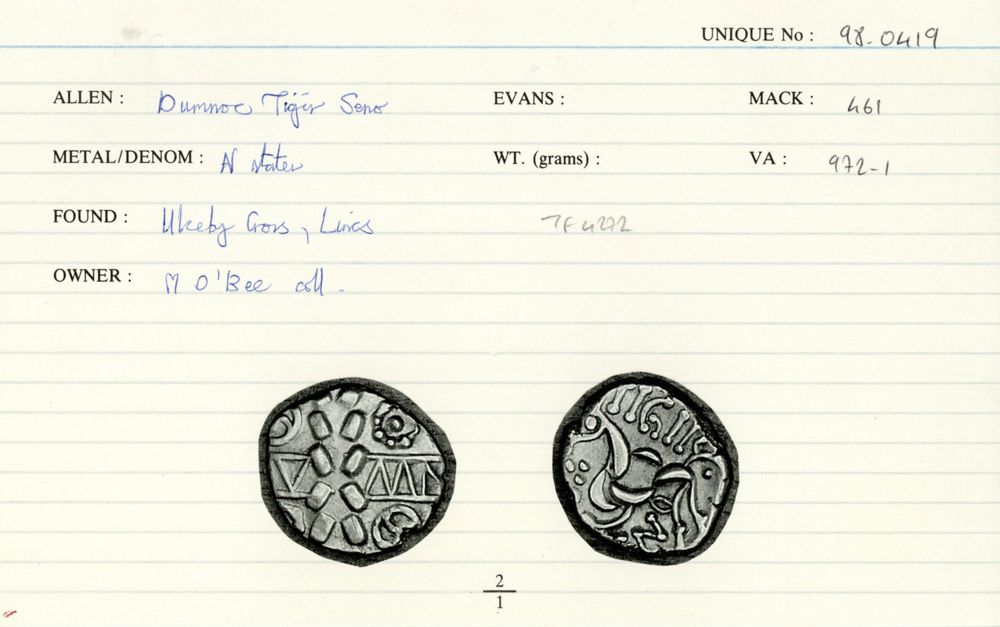 UNIQUE No : 98-0419
ALLEN : Dumnoc Tiger Seno EVANS : MACK : 461
METAL/DENOM : N stater WT. (grams) : VA : 972-1
FOUND : Ulceby Cross, Lincs TF 4272
OWNER : M O'Bee coll.
2
1